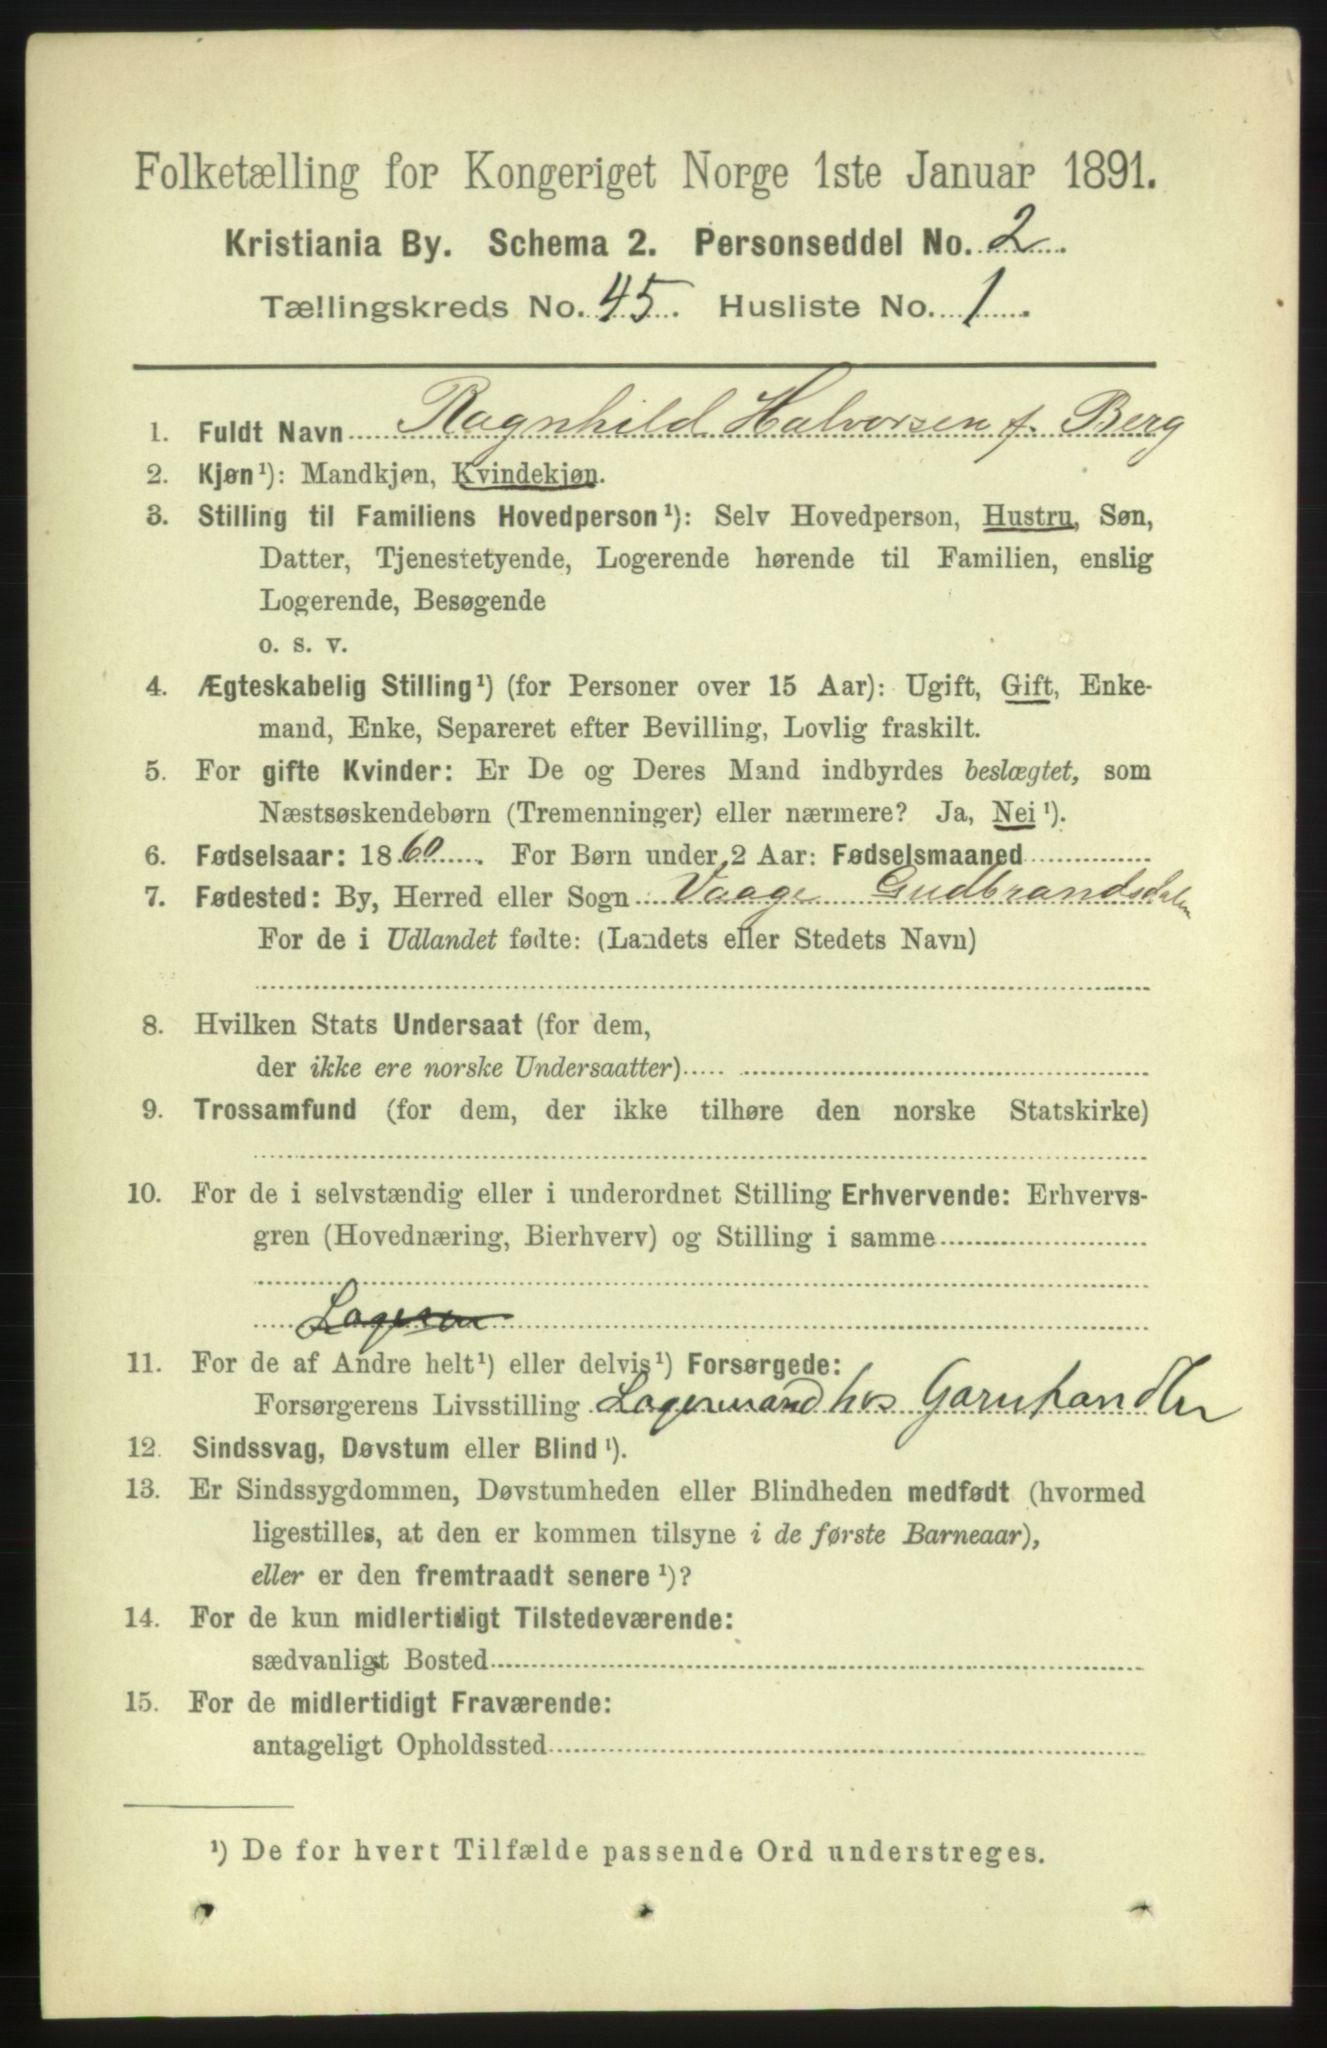 Folketælling for Kongeriget Norge 1ste Januar 1891.
Kristiania By. Schema 2. Personseddel No. 2
Tællingskreds No. 45. Husliste No. 1.
1. Fuldt Navn Ragnhild Halvorsen f. Berg
2. Kjøn¹): Mandkjøn, Kvindekjøn.
3. Stilling til Familiens Hovedperson¹): Selv Hovedperson, Hustru, Søn,
Datter, Tjenestetyende, Logerende hørende til Familien, enslig
Logerende, Besøgende
o. s. v.
4. Ægteskabelig Stilling¹) (for Personer over 15 Aar): Ugift, Gift, Enke-
mand, Enke, Separeret efter Bevilling, Lovlig fraskilt.
5. For gifte Kvinder: Er De og Deres Mand indbyrdes beslægtet, som
Næstsøskendebørn (Tremenninger) eller nærmere? Ja, Nei¹).
6. Fødselsaar: 1860. For Børn under 2 Aar: Fødselsmaaned
7. Fødested: By, Herred eller Sogn Vaage Gudbrandsdalen
For de i Udlandet fødte: (Landets eller Stedets Navn)
8. Hvilken Stats Undersaat (for dem,
der ikke ere norske Undersaatter)
9. Trossamfund (for dem, der ikke tilhøre den norske Statskirke)
10. For de i selvstændig eller i underordnet Stilling Erhvervende: Erhvervs-
gren (Hovednæring, Bierhverv) og Stilling i samme
11. For de af Andre helt¹) eller delvis¹) Forsørgede:
Forsørgerens Livsstilling Lagermand hos Garnhandler
12. Sindssvag, Døvstum eller Blind¹).
13. Er Sindssygdommen, Døvstumheden eller Blindheden medfødt (hvormed
ligestilles, at den er kommen tilsyne i de første Barneaar),
eller er den fremtraadt senere¹)?
14. For de kun midlertidigt Tilstedeværende:
sædvanligt Bosted
15. For de midlertidigt Fraværende:
antageligt Opholdssted
¹) De for hvert Tilfælde passende Ord understreges.